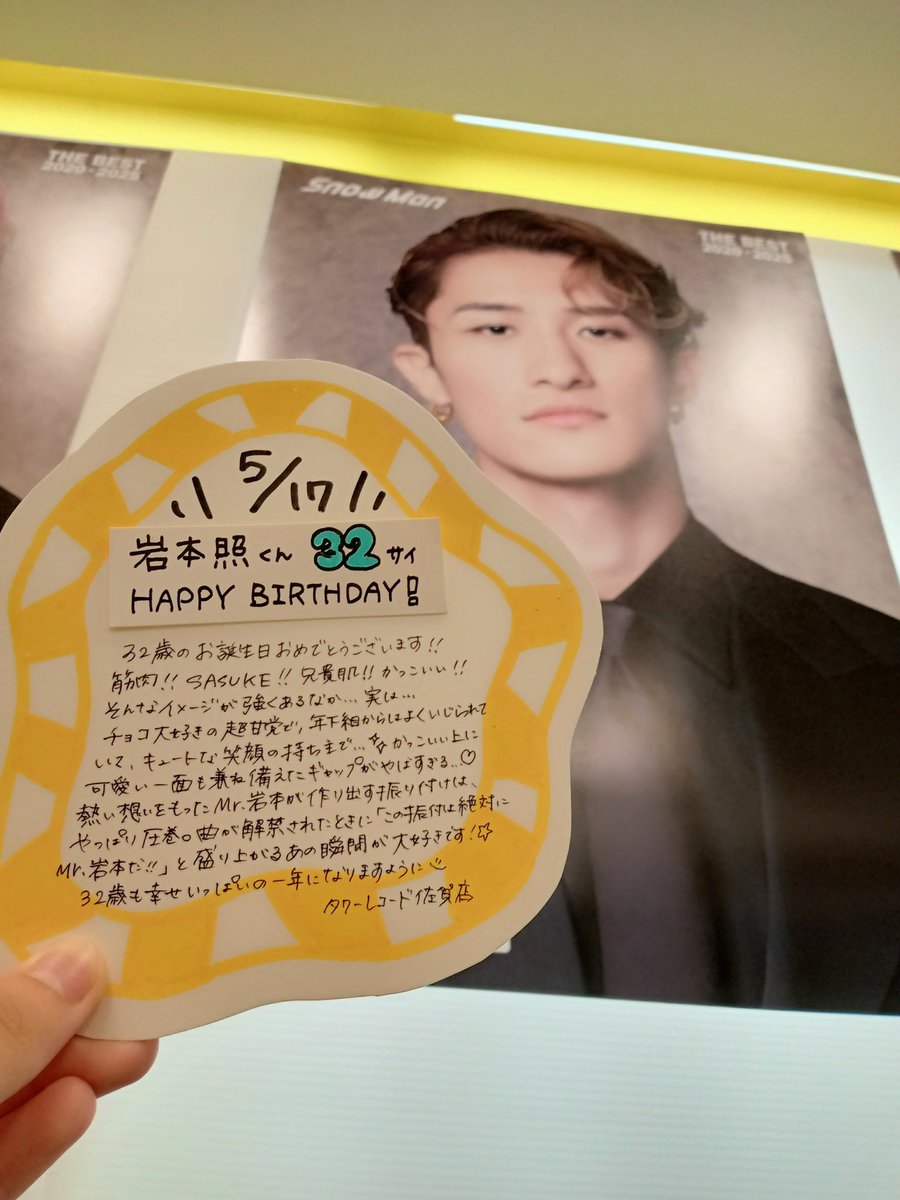 THE BEST
2020-2025
Snow Man
THE BEST
2020-2025
5/17
岩本照くん 32サイ
HAPPY BIRTHDAY!
32歳のお誕生日おめでとうございます!!
筋肉!! SASUKE!! 兄貴肌!! かっこいい!!
そんなイメージが強くあるなか… 実は…
チョコ大好きの超甘党で、年下組からはよくいじられて
いて、キュートな笑顔の持ち主で…✨かっこいい上に
可愛い一面も兼ね備えたギャップがやばすぎる…♡
熱い想いをもったMr.岩本が作り出す振り付けは、
やっぱり圧巻。曲が解禁されたときに「この振付は絶対に
Mr.岩本だ!!」と盛り上がるあの瞬間が大好きです!☆
32歳も幸せいっぱいの一年になりますように
タワーレコード佐賀店